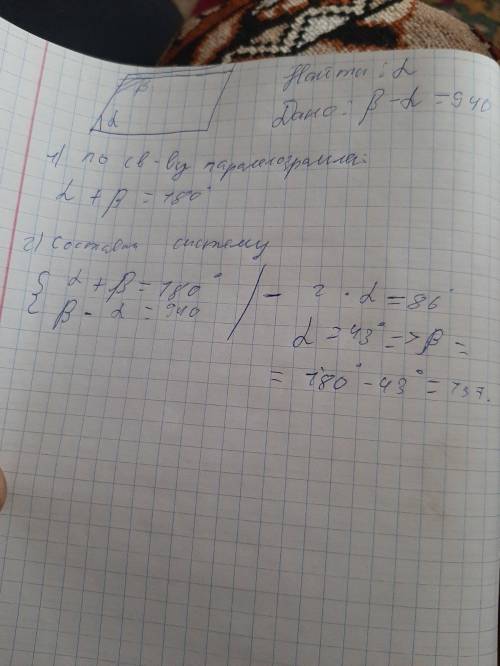 β
α
Найти: α
Дано: β - α = 94°
1) по св-ву параллелограмма:
α + β = 180°
2) Составим систему
{ α + β = 180° / - 2 · α = 86°
{ β - α = 94°
α = 43° => β =
= 180° - 43° = 137.